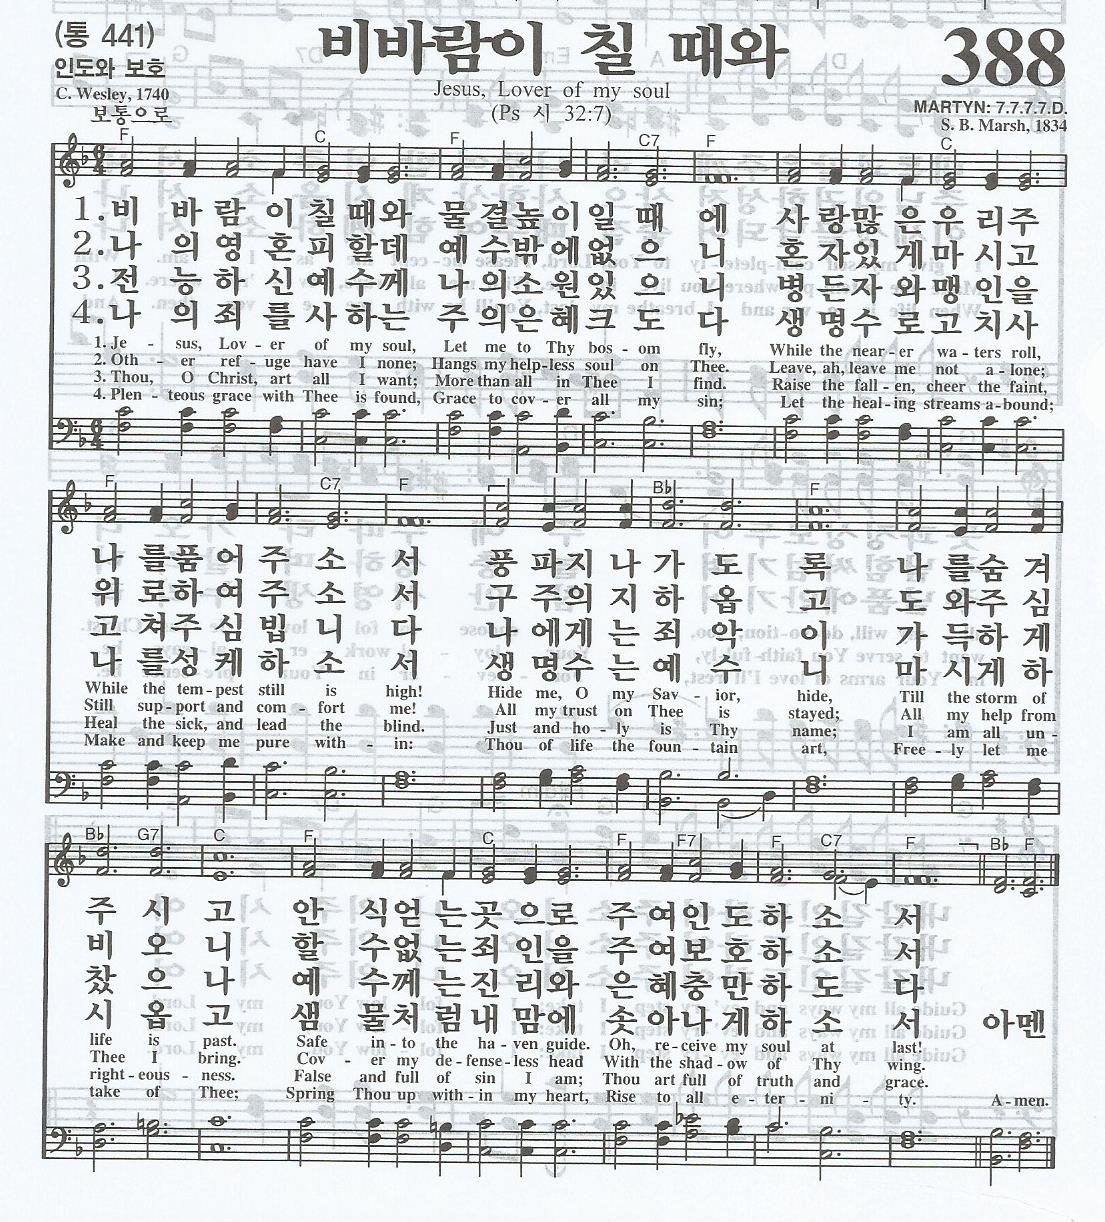 (통 441)
비바람이 칠 때와
388
인도와 보호
C. Wesley, 1740
Jesus, Lover of my soul
보통으로
(Ps 시 32:7)
MARTYN: 7.7.7.7.D.
S. B. Marsh, 1834
F C F C7 F C
1.비 바 람 이 칠 때와 물 결높 이일 때 에 사 랑많 은우 리주
2.나 의 영 혼 피 할데 예 수밖 에없 으 니 혼 자있 게마 시고
3.전 능 하 신 예 수께 나 의소 원있 으 니 병 든자 와맹 인을
4.나 의 죄 를 사 하는 주 의은 혜크 도 다 생 명수 로고 치사
1. Je - sus, Lov - er of my soul, Let me to Thy bos - om fly, While the near - er wa - ters roll,
2. Oth - er ref - uge have I none; Hangs my help-less soul on Thee. Leave, ah, leave me not a - lone;
3. Thou, O Christ, art all I want; More than all in Thee I find. Raise the fall - en, cheer the faint,
4. Plen - teous grace with Thee is found, Grace to cov - er all my sin; Let the heal - ing streams a - bound;
F C7 F Bb F
나 를품 어 주 소 서 풍 파지 나 가 도 록 나 를숨 겨
위 로하 여 주 소 서 구 주의 지 하 옵 고 도 와주 심
고 쳐주 심 법 니 다 나 에게 는 죄 악 이 가 득하 게
나 를성 케 하 소 서 생 명수 는 예 수 니 마 시게 하
While the tem - pest still is high! Hide me, O my Sav - ior, hide, Till the storm of
Still sup - port and com - fort me! All my trust on Thee is stayed; All my help from
Heal the sick, and lead the blind. Just and ho - ly is Thy name; I am all un -
Make and keep me pure with - in: Thou of life the foun - tain art, Free - ly let me
Bb G7 C F C F F7 F C7 F Bb F
주 시 고 안 식얻 는곳 으로 주 여인 도하 소 서
비 오 니 할 수없 는죄 인을 주 여보 호하 소 서
찼 으 나 예 수께 는진 리와 은 혜충 만하 도 다
시 옵 고 샘 물처 럼내 맘에 솟 아나 게하 소 서 아멘
life is past. Safe in - to the ha - ven guide. Oh, re - ceive my soul at last!
Thee I bring. Cov - er my de - fense - less head With the shad - ow of Thy wing.
right - eous - ness. False and full of sin I am; Thou art full of truth and grace.
take of Thee; Spring Thou up with - in my heart, Rise to all e - ter - ni - ty. A - men.